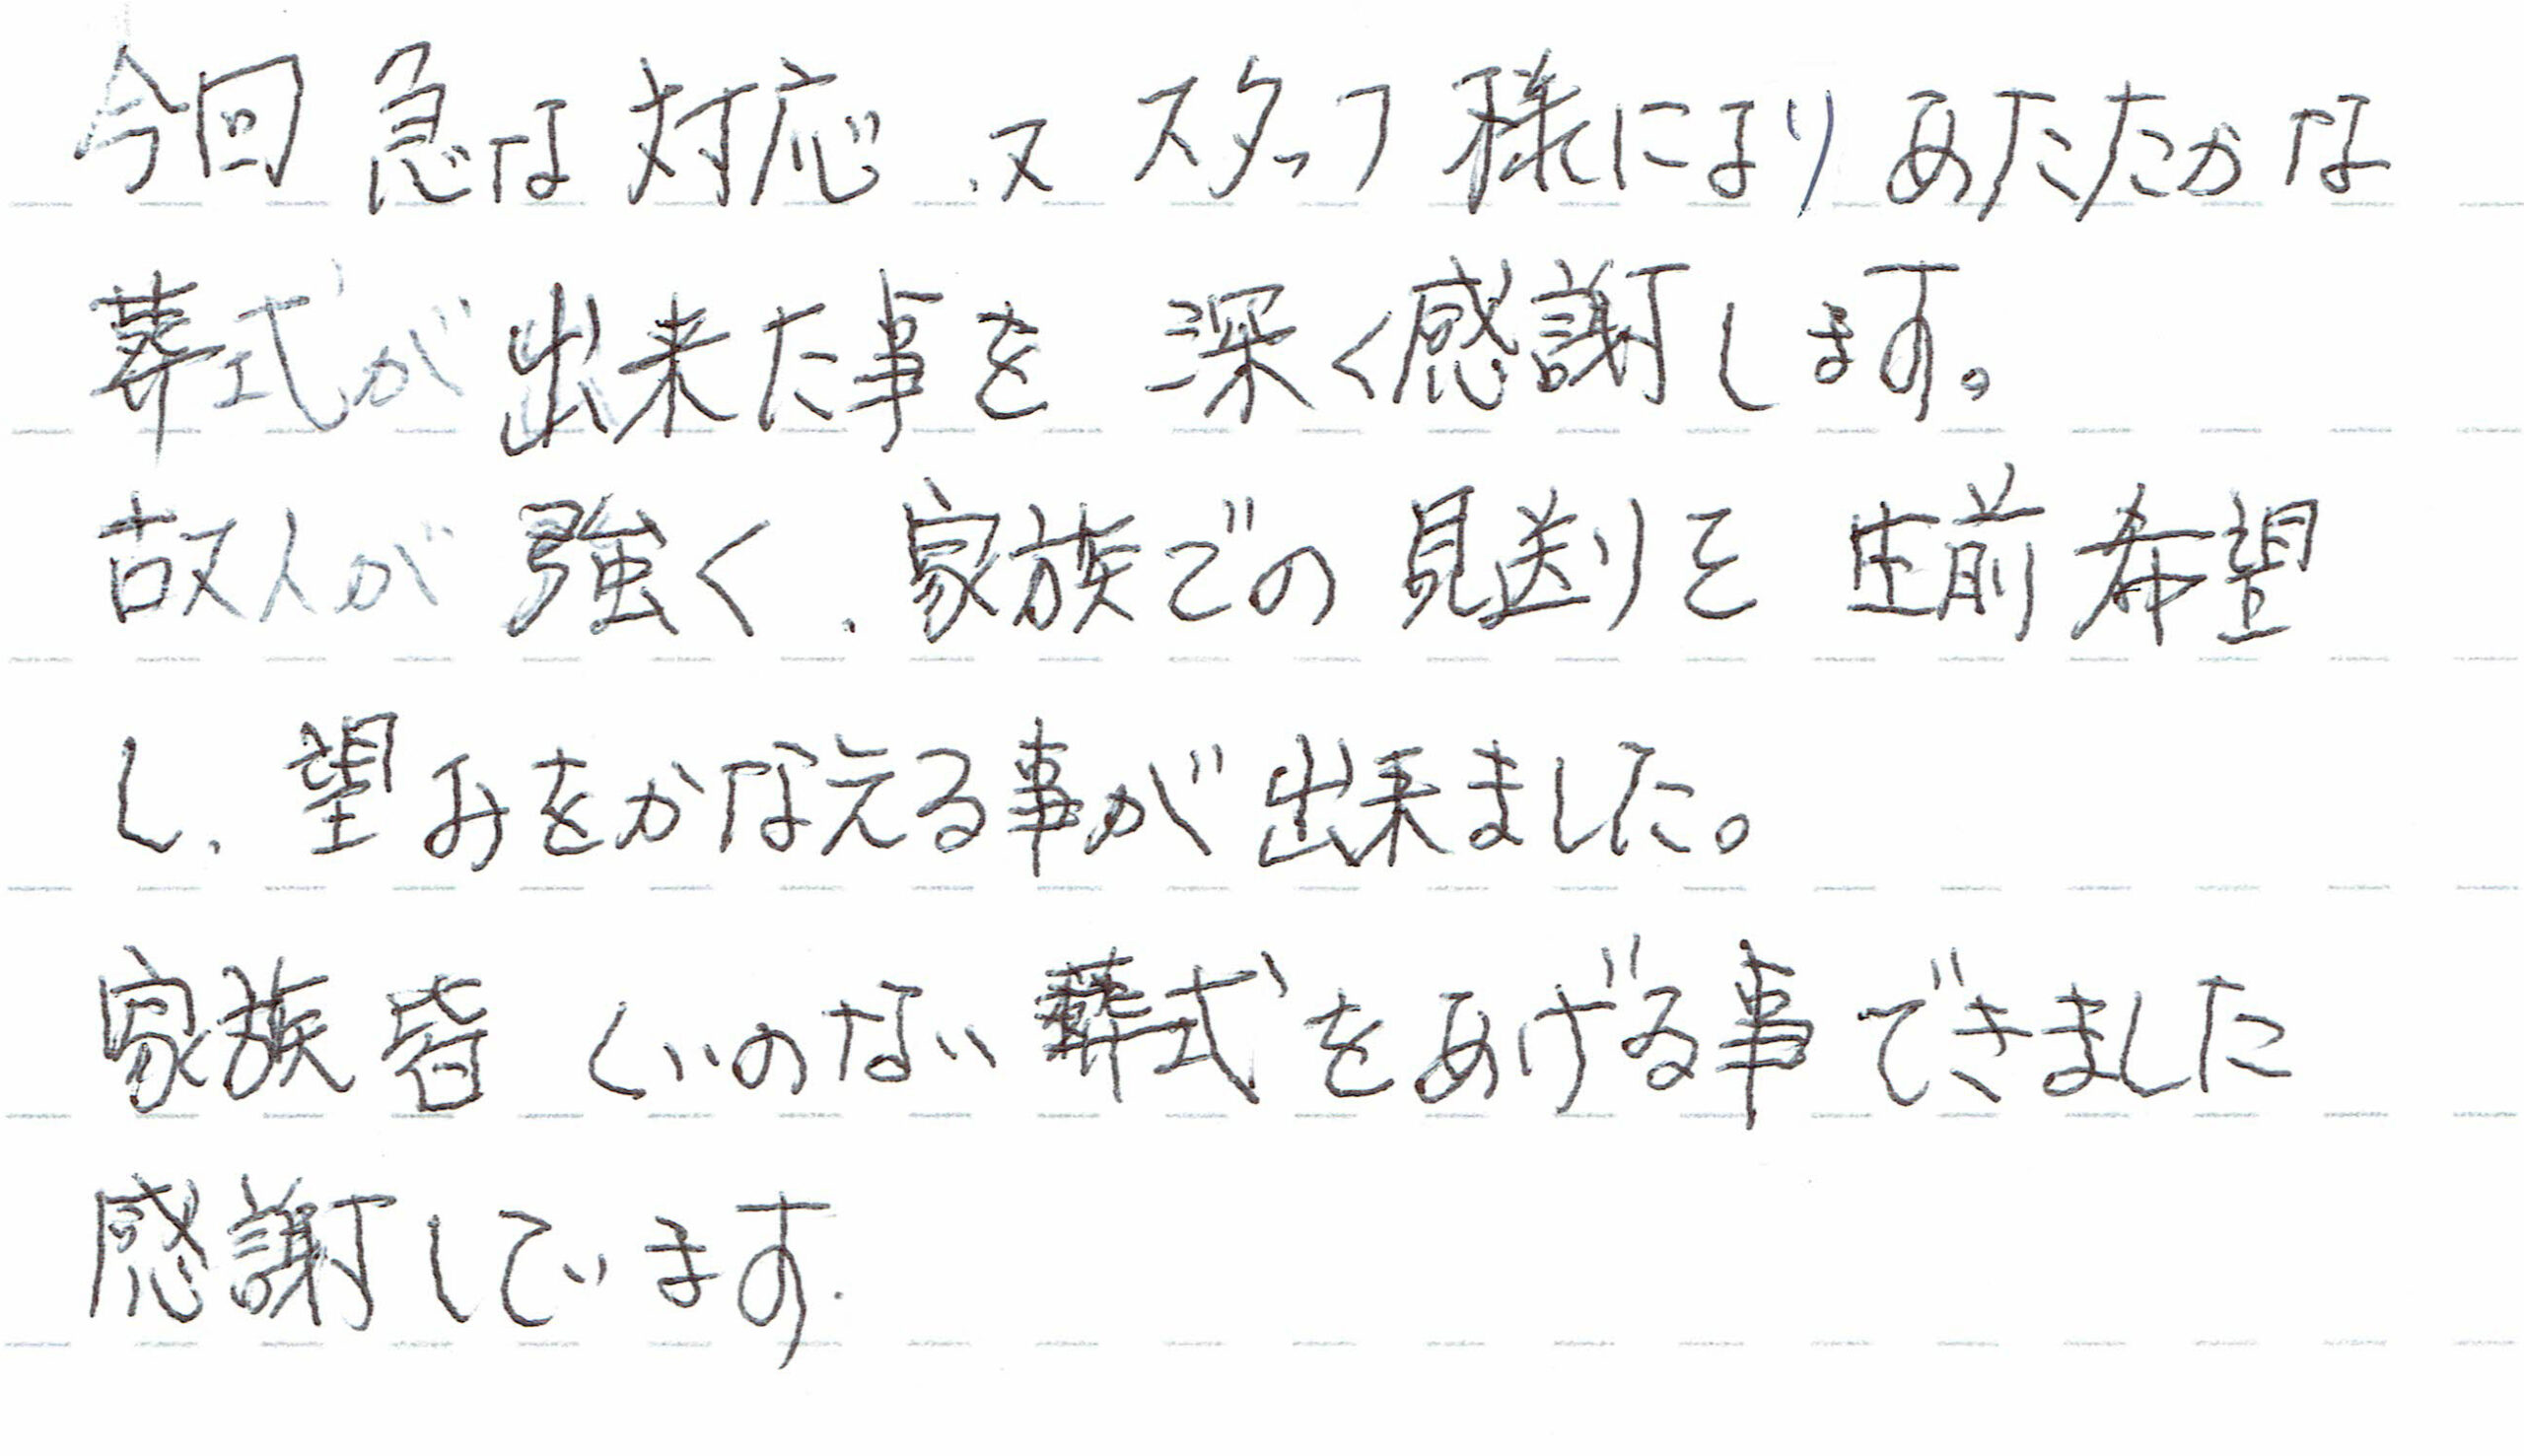 今回 急な 対応、又 スタッフ 様により あたたかな
葬式が 出来た事を 深く感謝します。
故人が 強く、家族での 見送りを 生前 希望
し、望みをかなえる事が 出来ました。
家族 皆 くいのない 葬式をあげる事 できました
感謝しています.